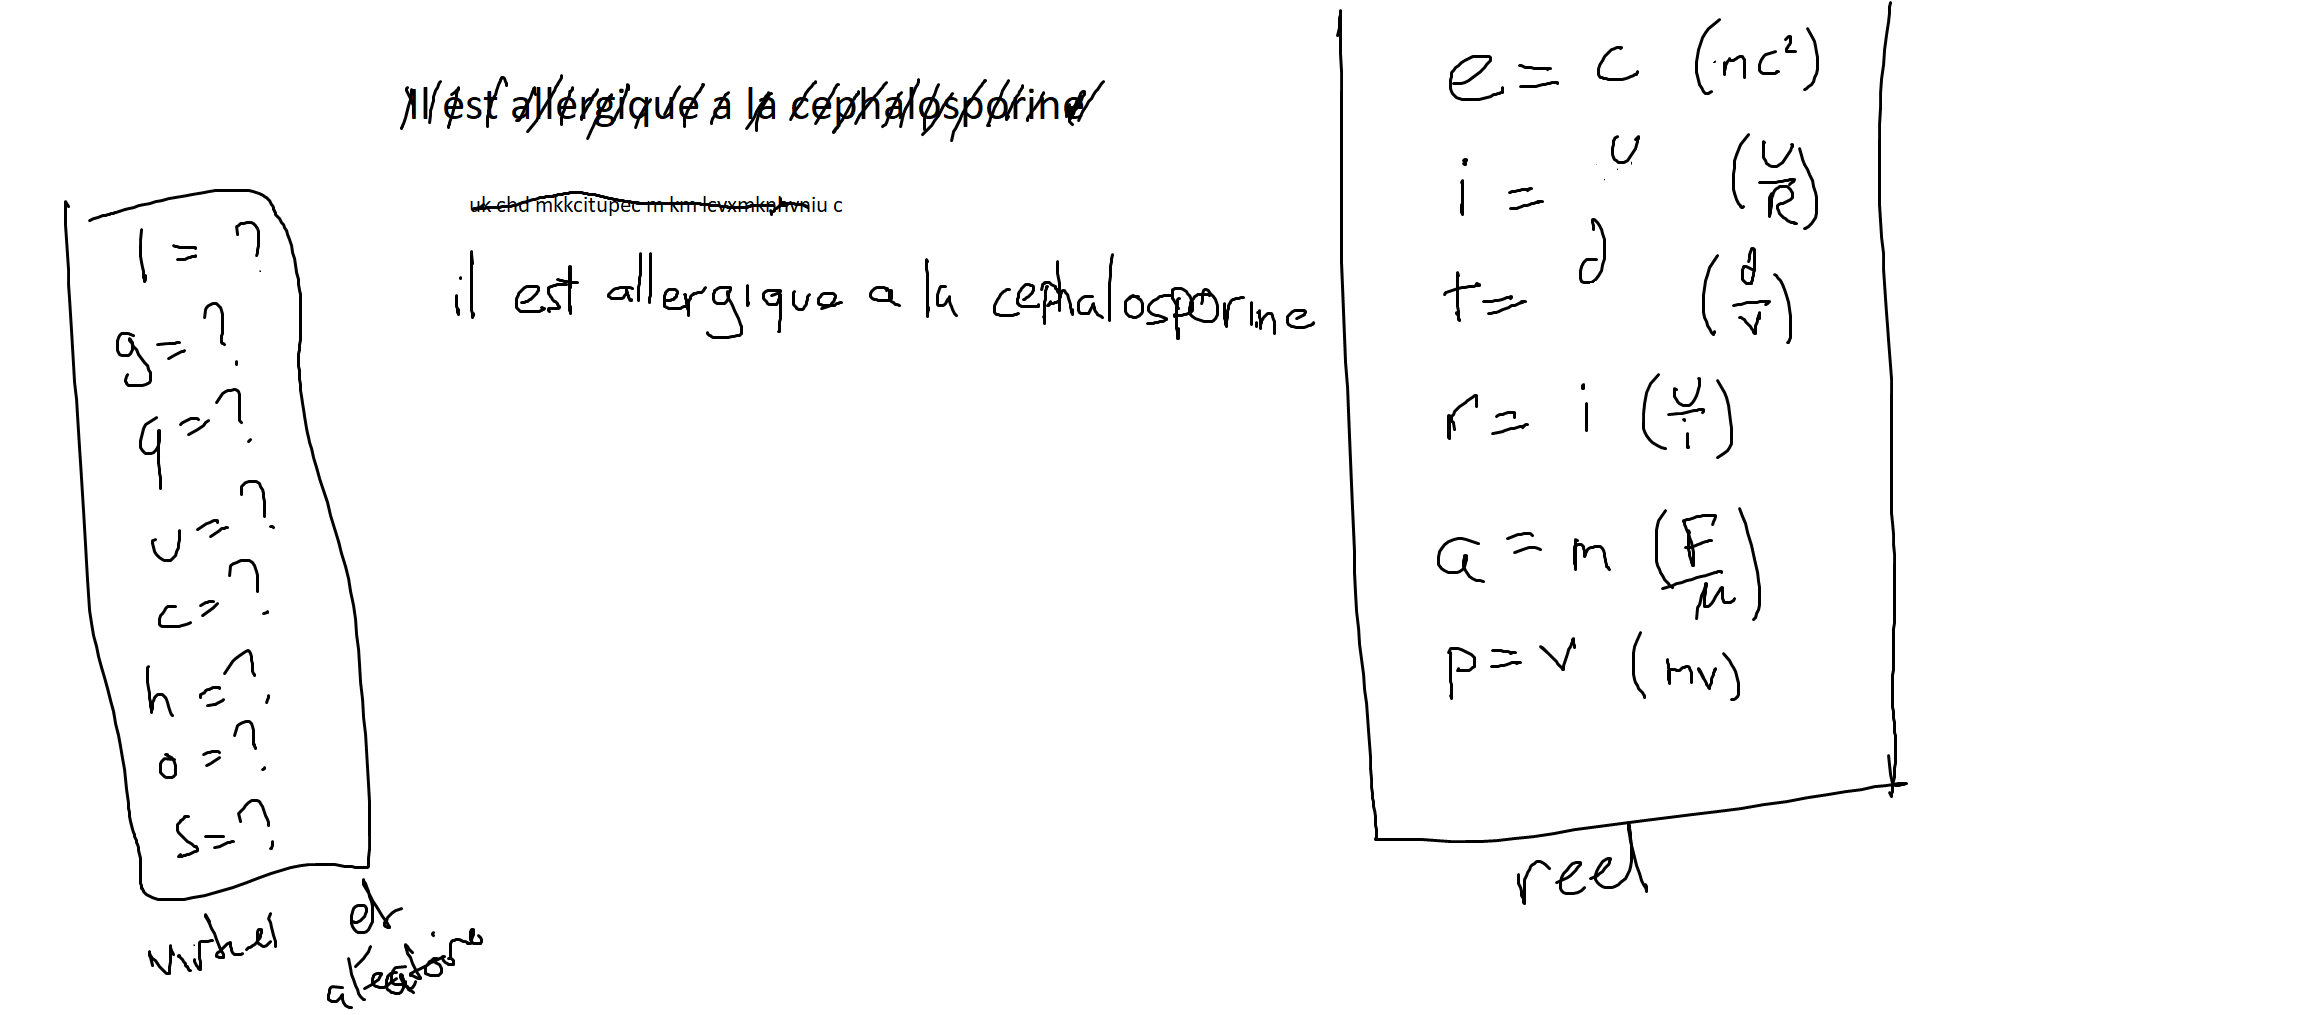 Il est allergique a la cephalosporine
uk chd mkkcitupec m km lcvxmkphvniu c
il est allergique a la cephalosporine
l = ?
g = ?
q = ?
u = ?
c = ?
h = ?
o = ?
s = ?
virtuel et
aléatoire
e = c (mc²)
i = u (U/R)
t = d (d/v)
r = i (U/i)
a = m (F/m)
p = v (mv)
reel